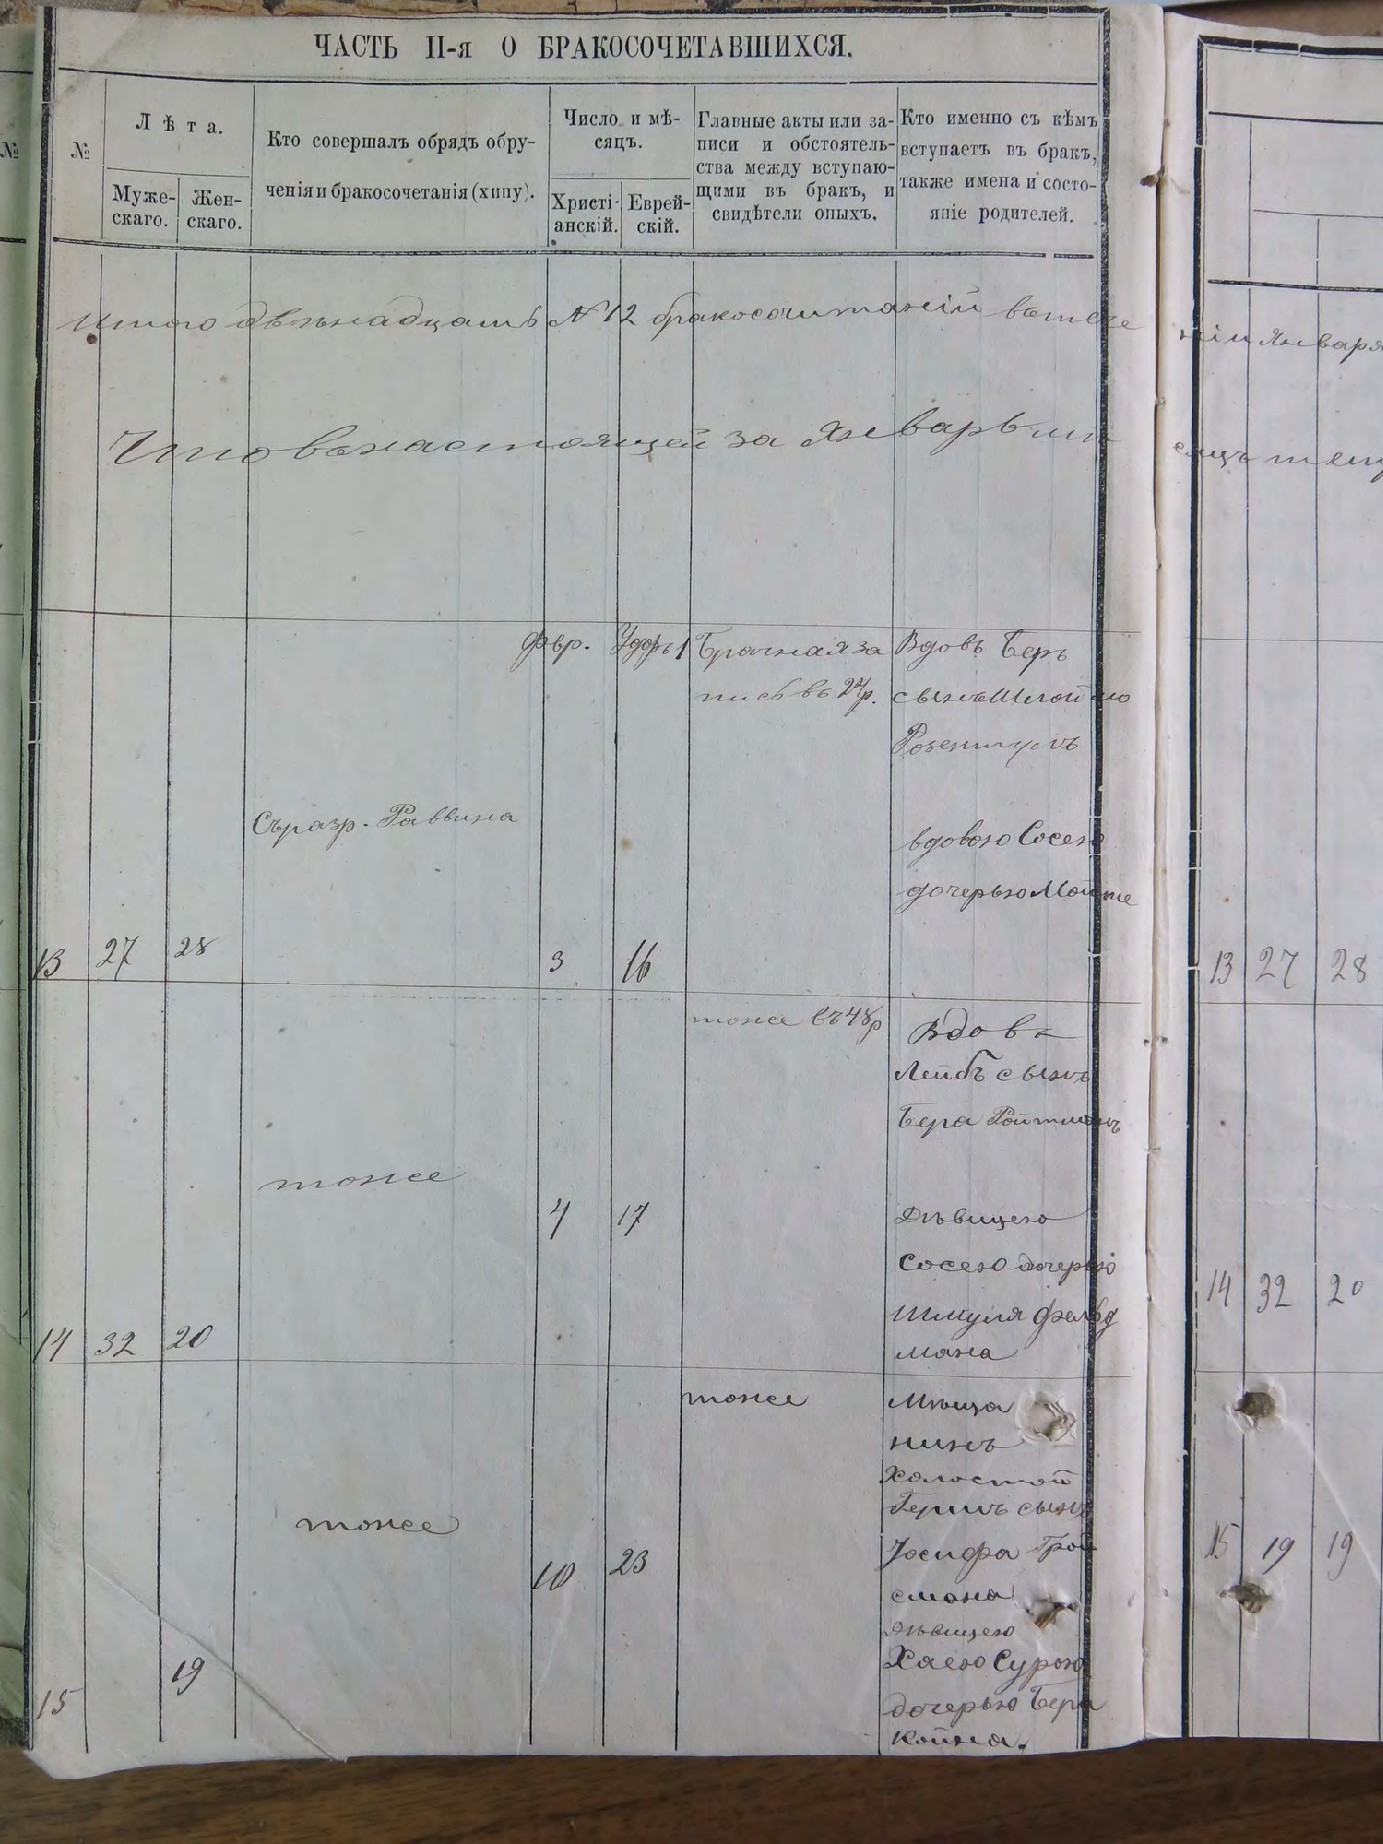 ЧАСТЬ II-я О БРАКОСОЧЕТАВШИХСЯ.
№
№
Лѣта.
Муже-
скаго.
Жен-
скаго.
Кто совершалъ обрядъ обру-
ченія и бракосочетанія (хипу).
Число и мѣ-
сяцъ.
Христі-
анскій.
Еврей-
скій.
Главные акты или за-
писи и обстоятель-
ства между вступаю-
щими въ бракъ, и
свидѣтели оныхъ.
Кто именно съ кѣмъ
вступаетъ въ бракъ,
также имена и состо-
яніе родителей.
Итого двѣнадцать № 12 бракосочитаній втече
ніи Января
Что въ настоящей за Январь
13
27
28
Съ разр. Раввина
Февр.
3
16
Брачная за
пись въ 24 р.
Вдовъ Беръ
сынъ Шлоймо
вдовою Сосею
дочерью
13 27 28
14
32
20
тоже
4
17
тоже въ 48 р
Вдовъ
Лейбъ сынъ
Бера Ройтманъ
Дѣвицею
Сосею дочерью
Шмуля Фельд
мана
14 32 20
15
19
тоже
10
23
тоже
Мѣща
нинъ
Холостой
Гершъ сынъ
Іосифа Грой
смана
дѣвицею
Хаею Сурою
дочерью Бера
Койна.
15 19 19